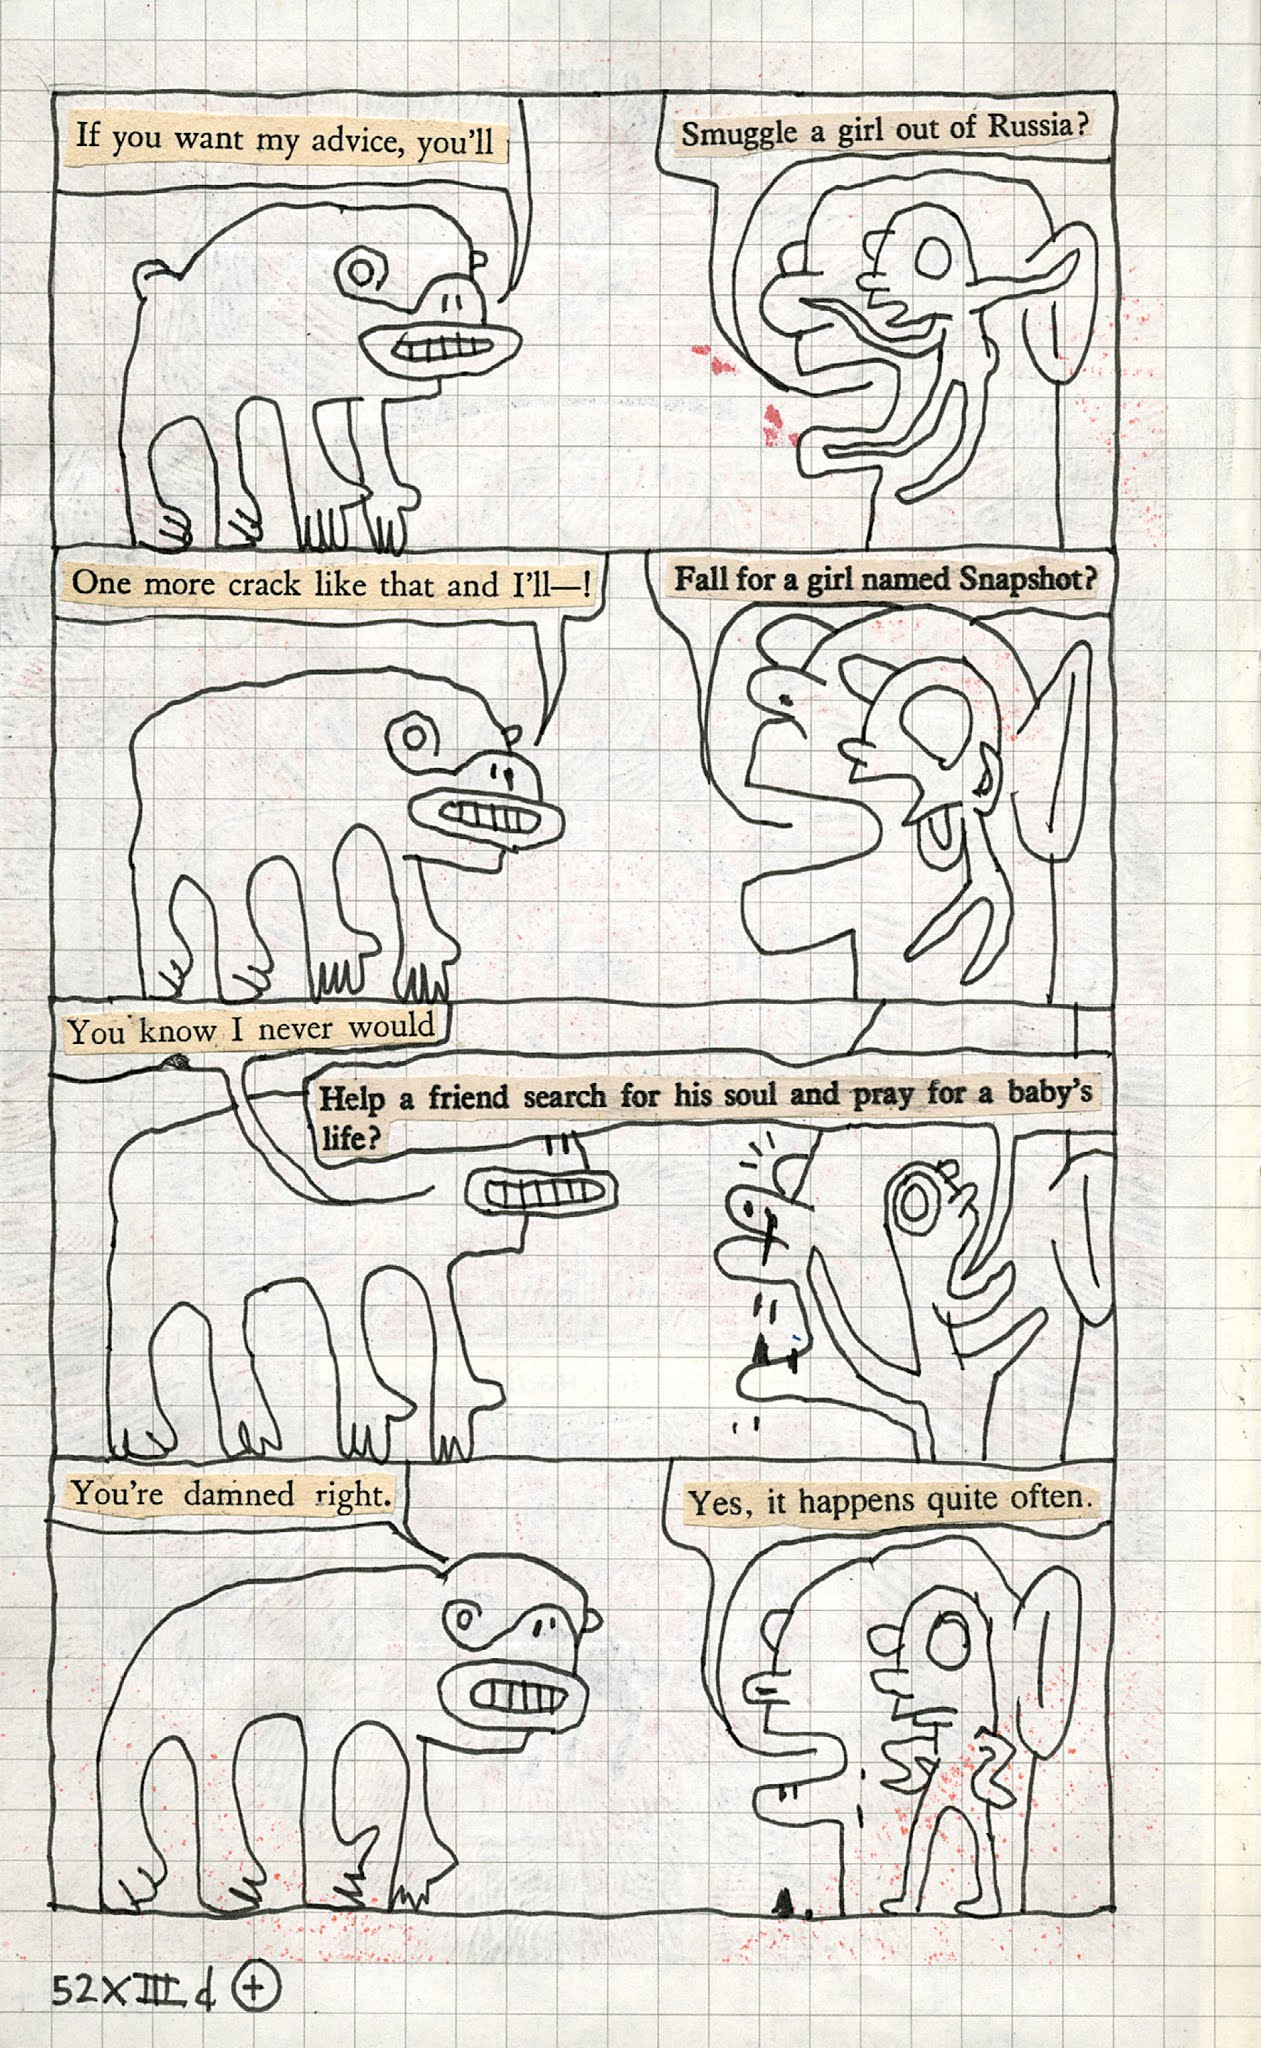 If you want my advice, you'll
Smuggle a girl out of Russia?
One more crack like that and I'll—!
Fall for a girl named Snapshot?
You know I never would
Help a friend search for his soul and pray for a baby's
life?
You're damned right.
Yes, it happens quite often.
52XIII d +